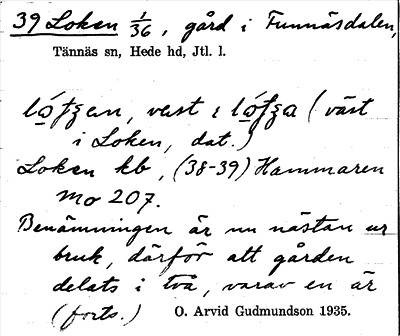 39 Loken 1/36, gård i Funnäsdalen,
Tännäs sn, Hede hd, Jtl. l.
väst i (väst
i Loken, dat.)
Loken kb, (38-39) Hammaren
Mo 207.
Benämningen är nu nästan ur
bruk, därför att gården
delats i två, varav en är
(forts.) O. Arvid Gudmundson 1935.